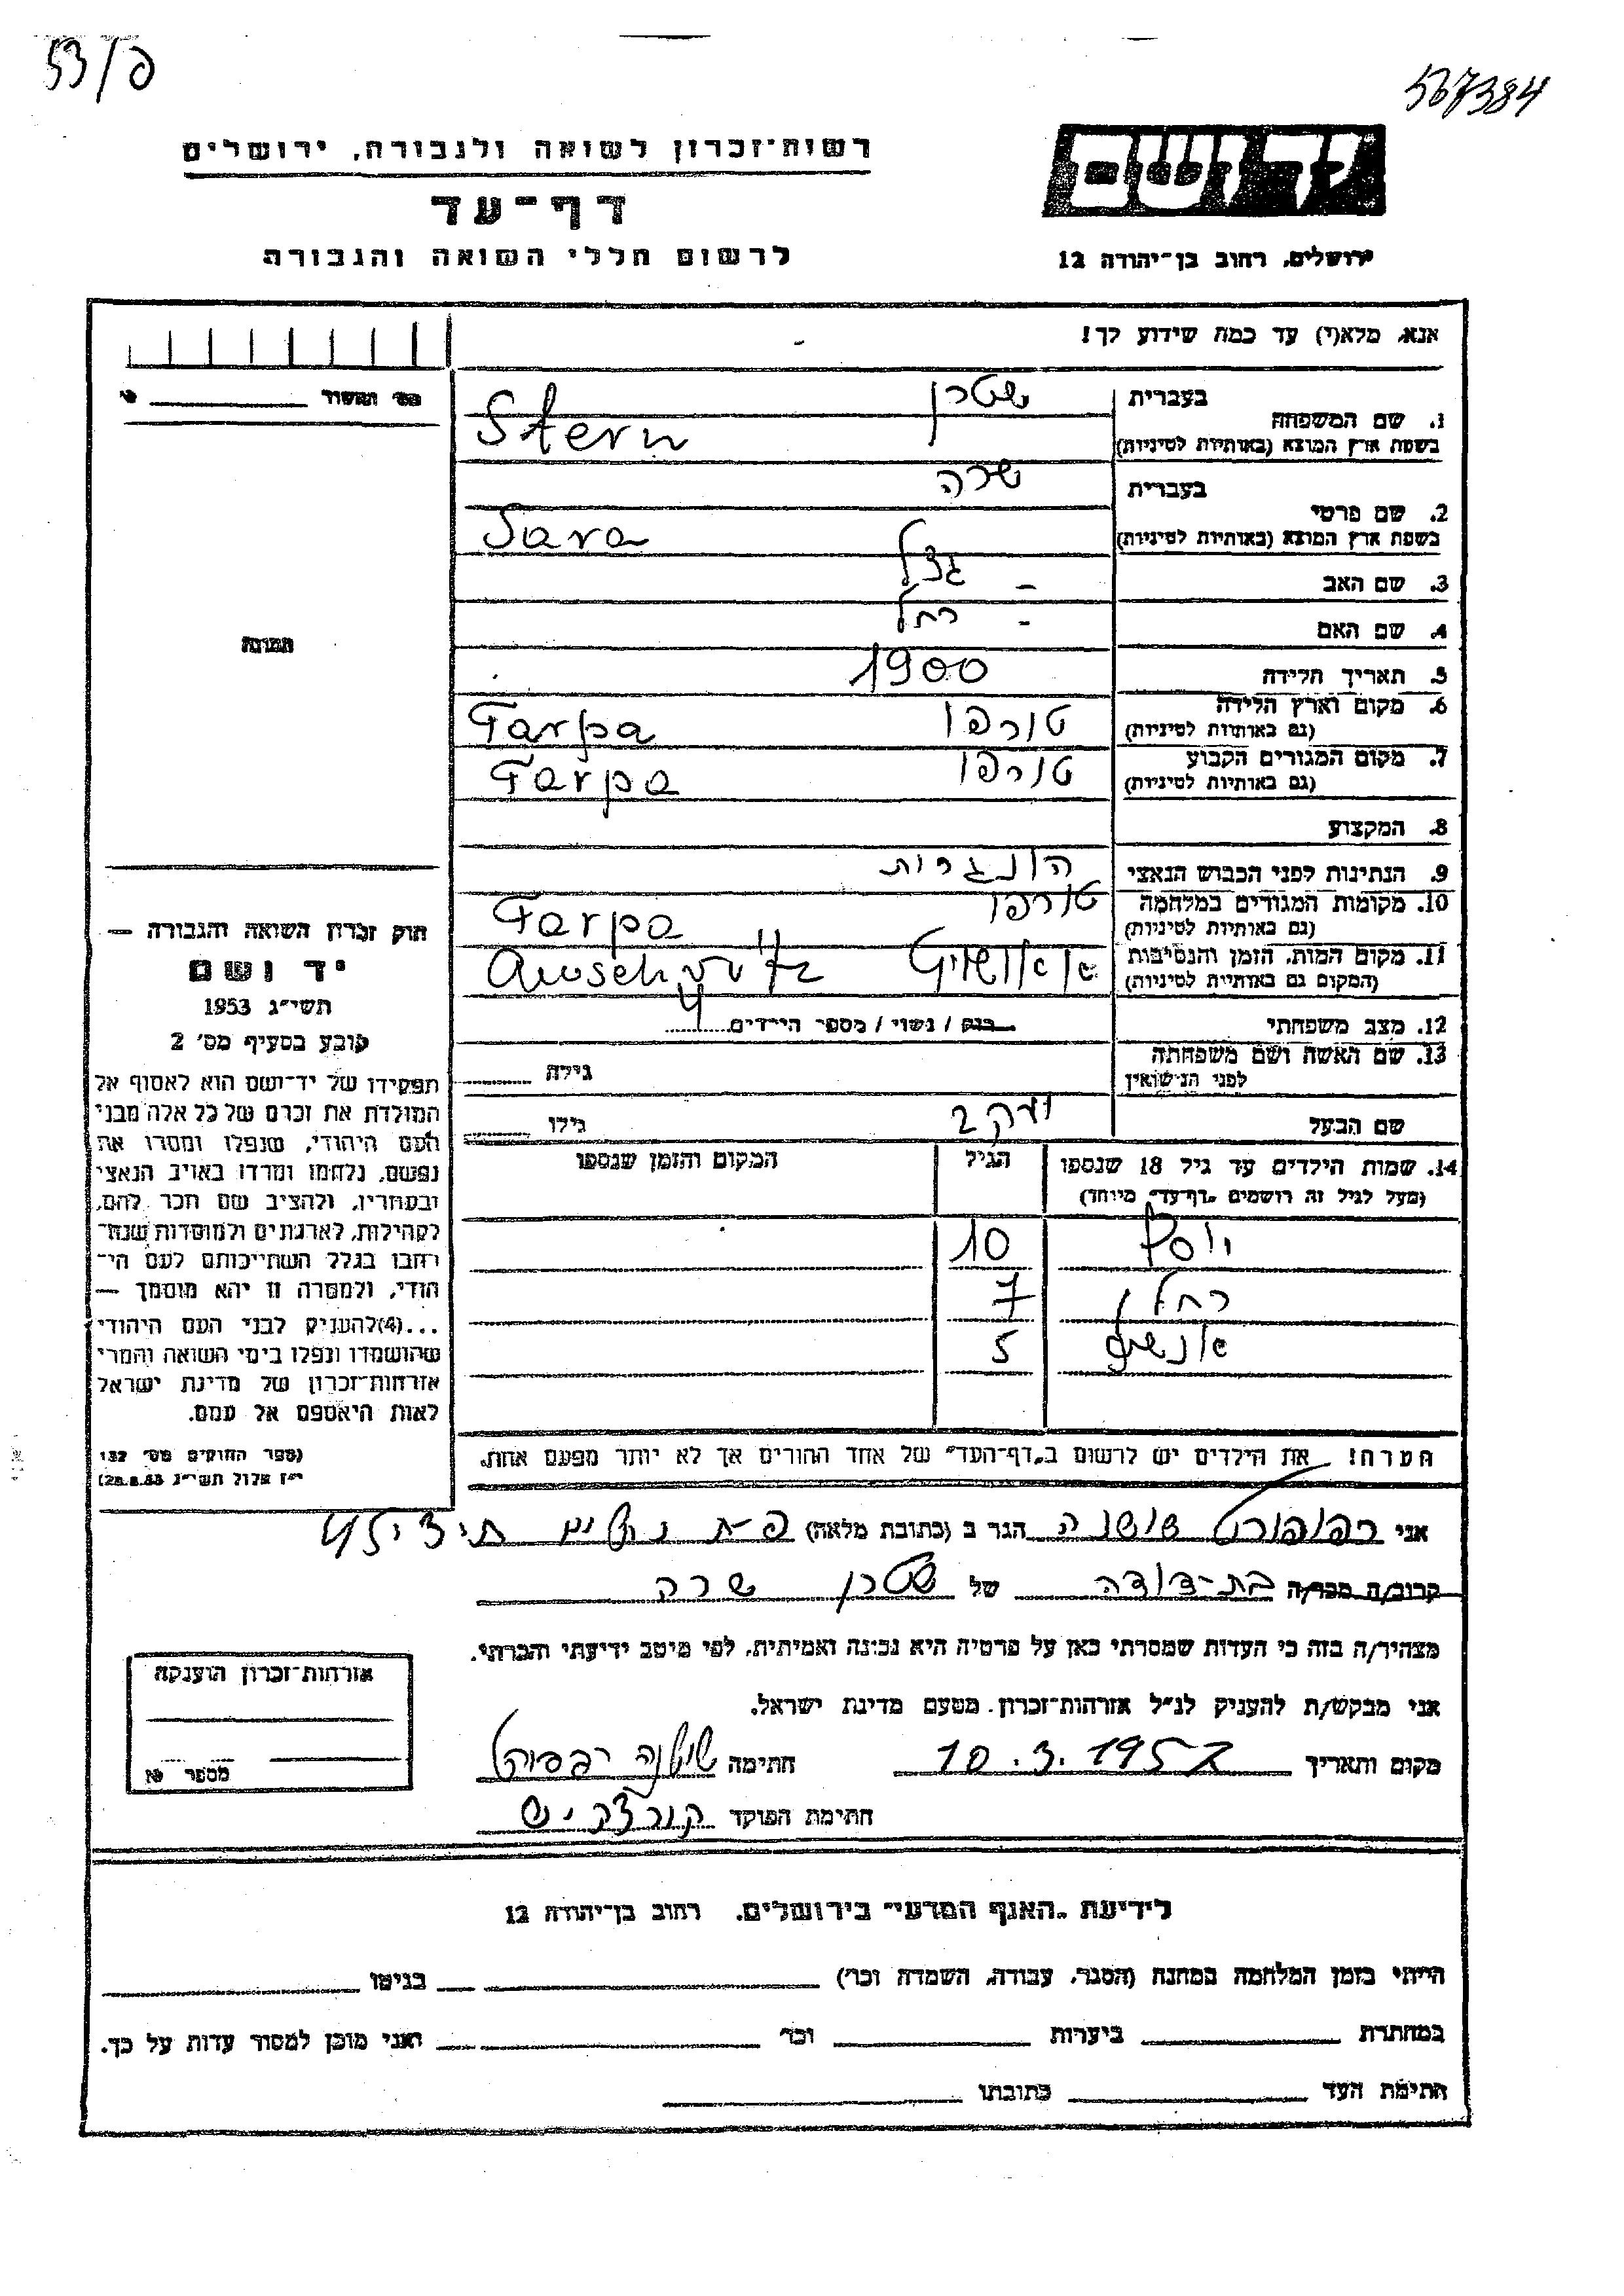 53/פ
567384
רשות־זכרון לשואה ולגבורה, ירושלים
דף־עד
לרשום חללי השואה והגבורה
יד ושם
ירושלים, רחוב בן־יהודה 12
אנא, מלא(י) עד כמה שידוע לך!
1. שם המשפחה
בעברית שטרן
בשפת ארץ המוצא (באותיות לטיניות) Stern
2. שם פרטי
בעברית שרה
בשפת ארץ המוצא (באותיות לטיניות) Sara
3. שם האב - גצל
4. שם האם - רחל
5. תאריך הלידה 1900
6. מקום וארץ הלידה טורפו Tarpa
(גם באותיות לטיניות)
7. מקום המגורים הקבוע טורפו Tarpa
(גם באותיות לטיניות)
8. המקצוע
9. הנתינות לפני הכבוש הנאצי הונגרית
10. מקומות המגורים במלחמה טורפו Tarpa
(גם באותיות לטיניות)
11. מקום המות, הזמן והנסיבות
(המקום גם באותיות לטיניות)
12. מצב משפחתי רווק / נשוי / מספר הילדים 4
13. שם האשה ושם משפחתה
לפני הנישואין גילה
שם הבעל יעקב גילו
14. שמות הילדים עד גיל 18 שנספו הגיל המקום והזמן שנספו
(מעל לגיל זה רושמים "דף־עד" מיוחד)
יוסף 10
7
5
הערה! את הילדים יש לרשום ב"דף־העד" של אחד ההורים אך לא יותר מפעם אחת.
מס' התשור
תמונה
חוק זכרון השואה והגבורה —
יד ושם
תשי"ג 1953
קובע בסעיף מס' 2
תפקידו של יד־ושם הוא לאסוף אל
המולדת את זכרם של כל אלה מבני
העם היהודי, שנפלו ומסרו את
נפשם, נלחמו ומרדו באויב הנאצי
ובעוזריו, ולהציב שם וזכר להם,
לקהילות, לארגונים ולמוסדות שנח־
רבו בגלל השתייכותם לעם הי־
הודי, ולמטרה זו יהא מוסמך —
...(4)להעניק לבני העם היהודי
שהושמדו ונפלו בימי השואה והמרי
אזרחות־זכרון של מדינת ישראל
לאות היאספם אל עמם.
(ספר החוקים מס' 132
י"ז אלול תשי"ג 28.8.53)
אני רפופורט שושנה הגר ב (כתובת מלאה)
קרוב/ה מכר/ה בת-דודה של שטרן שרה
מצהיר/ה בזה כי העדות שמסרתי כאן על פרטיה היא נכונה ואמיתית, לפי מיטב ידיעתי והכרתי.
אני מבקש/ת להעניק לנ"ל אזרחות־זכרון מטעם מדינת ישראל.
מקום ותאריך 10.3.1957 חתימה שושנה רפפורט
חתימת הפוקד
אזרחות־זכרון הוענקה
מספר
לידיעת "האגף המדעי" בירושלים, רחוב בן־יהודה 12
הייתי בזמן המלחמה במחנה (הסגר, עבודה, השמדה וכו') בגיטו
במחתרת ביערות וכו' ואני מוכן למסור עדות על כך.
חתימת העד כתובתו